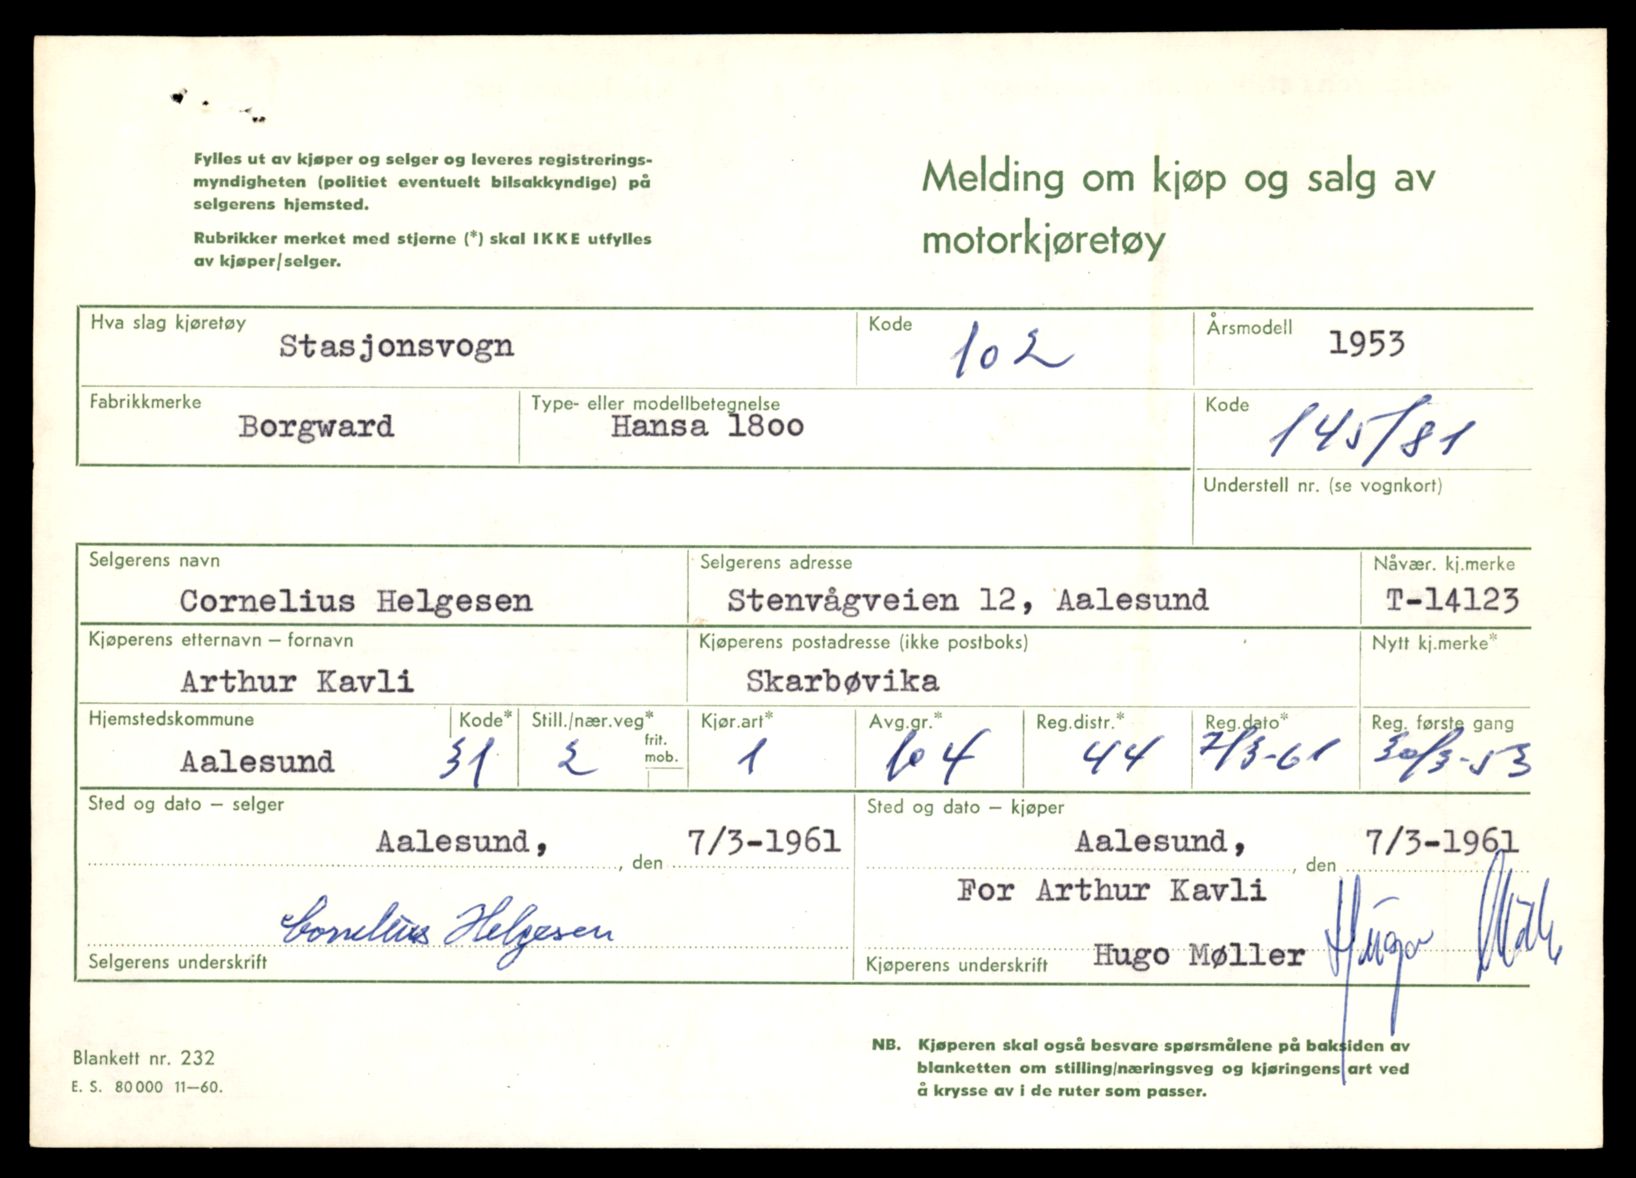 Fylles ut av kjøper og selger og leveres registrerings-
myndigheten (politiet eventuelt bilsakkyndige) på
selgerens hjemsted.
Rubrikker merket med stjerne (*) skal IKKE utfylles
av kjøper/selger.
Melding om kjøp og salg av
motorkjøretøy
Hva slag kjøretøy
Stasjonsvogn
Kode
102
Årsmodell
1953
Fabrikkmerke
Borgward
Type- eller modellbetegnelse
Hansa 18oo
Kode
145/81
Understell nr. (se vognkort)
Selgerens navn
Cornelius Helgesen
Selgerens adresse
Stenvågveien 12, Aalesund
Nåvær. kj.merke
T-14123
Kjøperens etternavn – fornavn
Arthur Kavli
Kjøperens postadresse (ikke postboks)
Skarbøvika
Nytt kj.merke*
Hjemstedskommune
Aalesund
Kode*
31
Still./nær.veg*
2
frit.
mob.
Kjør.art*
1
Avg.gr.*
104
Reg.distr.*
44
Reg.dato*
7/3-61
Reg. første gang
30/3-53
Sted og dato – selger
Aalesund, , den 7/3-1961
Cornelius Helgesen
Selgerens underskrift
Sted og dato – kjøper
Aalesund, , den 7/3-1961
For Arthur Kavli
Hugo Møller Hugo Møller
Kjøperens underskrift
Blankett nr. 232
E. S. 80000 11—60.
NB. Kjøperen skal også besvare spørsmålene på baksiden av
blanketten om stilling/næringsveg og kjøringens art ved
å krysse av i de ruter som passer.